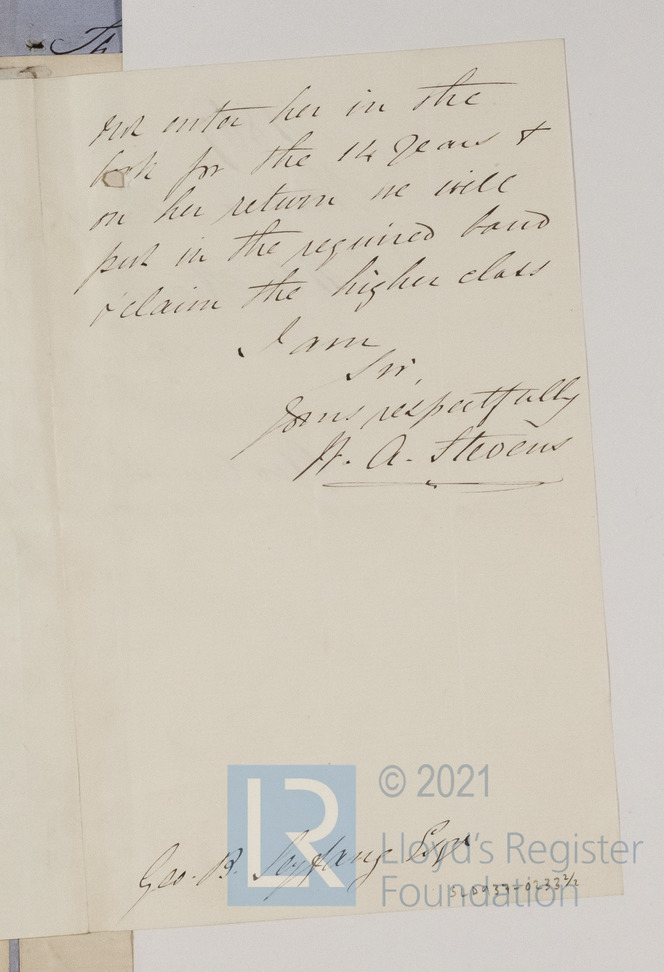 Th
not enter her in the
book for the 14 Years &
on her return we will
put in the required band
& claim the higher class
I am
Sir,
Yours respectfully
H. A. Stevens
© 2021
LR
Lloyd's Register
Foundation
Geo. B. Seyfang Esqr
SLD033-0233 2/2